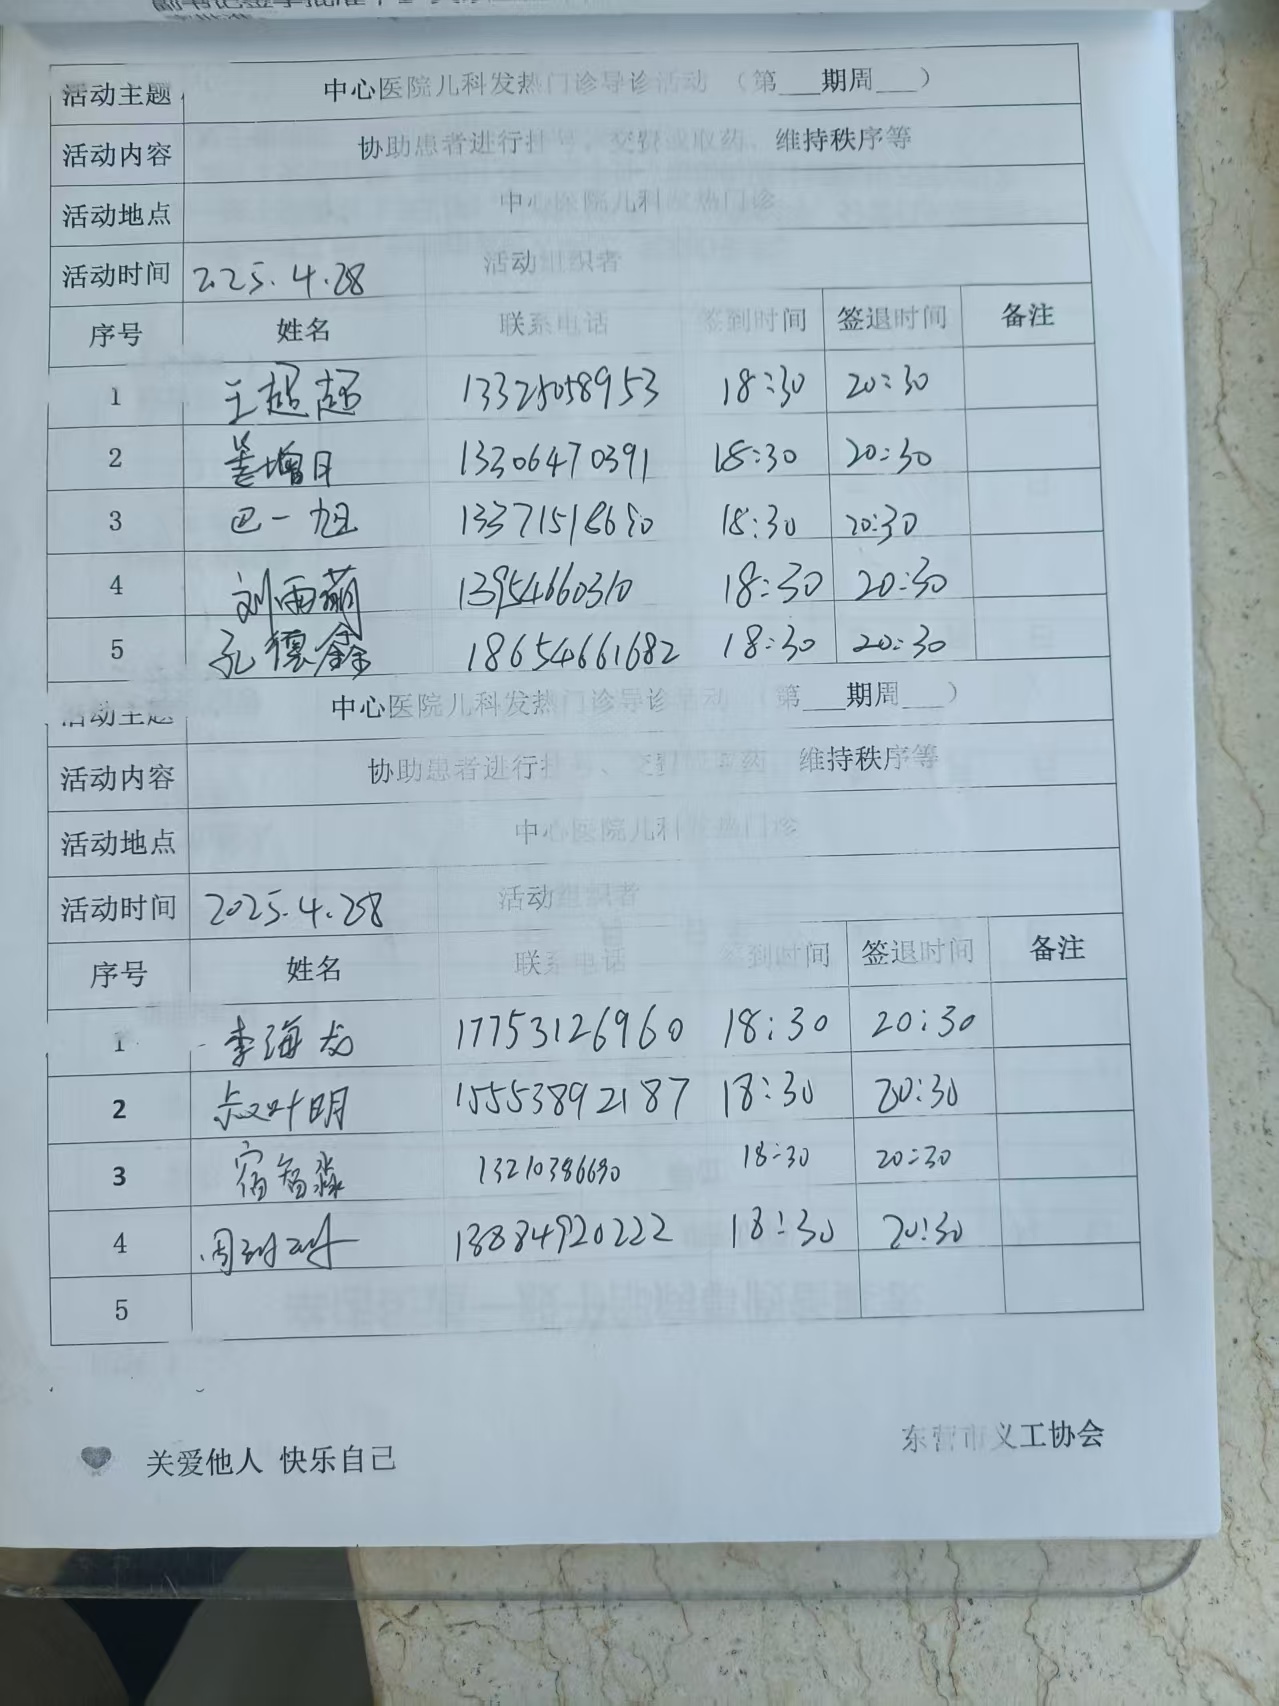 活动主题 中心医院儿科发热门诊导诊活动 （第___期周___）
活动内容 协助患者进行挂号、交费或取药、维持秩序等
活动地点 中心医院儿科发热门诊
活动时间 2025.4.28 活动组织者
序号 姓名 联系电话 签到时间 签退时间 备注
1 王超超 13325058953 18:30 20:30
2 增日 13306470391 18:30 20:30
3 巴一旭 18:30 20:30
4 刘雨萌 13954660310 18:30 20:30
5 孔德鑫 18654661682 18:30 20:30
活动主题 中心医院儿科发热门诊导诊活动 （第___期周___）
活动内容 协助患者进行挂号、交费或取药、维持秩序等
活动地点 中心医院儿科发热门诊
活动时间 2025.4.28 活动组织者
序号 姓名 联系电话 签到时间 签退时间 备注
1 李海龙 17753126960 18:30 20:30
2 明 15553892187 18:30 20:30
3 宿智淼 13210386690 18:30 20:30
4 周 13884920222 18:30 20:30
5
关爱他人 快乐自己
东营市义工协会